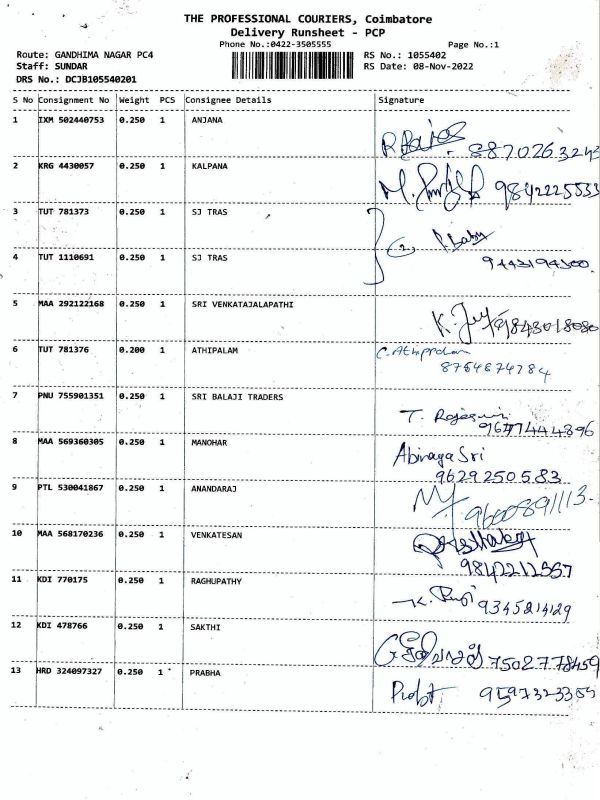 THE PROFESSIONAL COURIERS, Coimbatore
Delivery Runsheet - PCP
Phone No.:0422-3505555 Page No.:1
Route: GANDHIMA NAGAR PC4 RS No.: 1055402
Staff: SUNDAR RS Date: 08-Nov-2022
DRS No.: DCJB105540201
S No Consignment No Weight PCS Consignee Details Signature
1 IXM 502440753 0.250 1 ANJANA
8870263243
2 KRG 4430057 0.250 1 KALPANA
9842225533
3 TUT 781373 0.250 1 SJ TRAS
P. Baby
4 TUT 1110691 0.250 1 SJ TRAS
9443194300
5 MAA 292122168 0.250 1 SRI VENKATAJALAPATHI
9843018080
6 TUT 781376 0.200 1 ATHIPALAM
8754674784
7 PNU 755901351 0.250 1 SRI BALAJI TRADERS
T.
9677444896
8 MAA 569360305 0.250 1 MANOHAR
Abinaya Sri
9629250583
9 PTL 530041867 0.250 1 ANANDARAJ
9600891113
10 MAA 568170236 0.250 1 VENKATESAN
9842212557
11 KDI 770175 0.250 1 RAGHUPATHY
9345214129
12 KDI 478766 0.250 1 SAKTHI
7502778459
13 HRD 324097327 0.250 1 PRABHA
9597323355